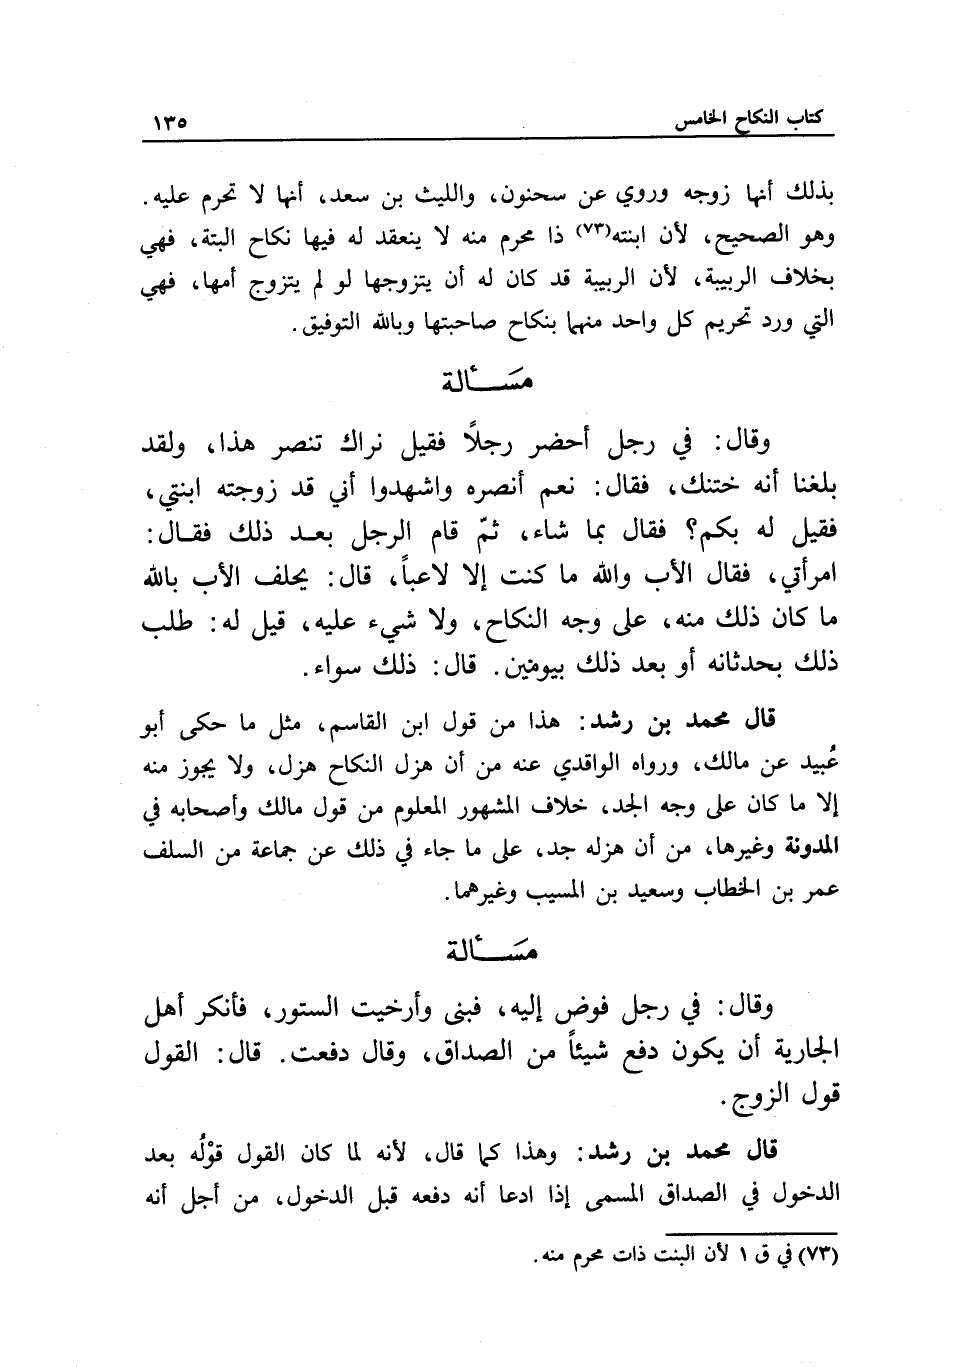 كتاب النكاح الخامس ١٣٥
بذلك أنها زوجه وروي عن سحنون، والليث بن سعد، أنها لا تحرم عليه.
وهو الصحيح، لأن ابنته(٧٣) ذا محرم منه لا ينعقد له فيها نكاح البتة، فهي
بخلاف الربيبة، لأن الربيبة قد كان له أن يتزوجها لو لم يتزوج أمها، فهي
التي ورد تحريم كل واحد منهما بنكاح صاحبتها وبالله التوفيق.
مَسَـــأَلة
وقال: في رجل أحضر رجلًا فقيل نراك تنصر هذا، ولقد
بلغنا أنه ختنك، فقال: نعم أنصره واشهدوا أني قد زوجته ابنتي،
فقيل له بكم؟ فقال بما شاء، ثمّ قام الرجل بعـد ذلك فقـال:
امرأتي، فقال الأب والله ما كنت إلا لاعباً، قال: يحلف الأب بالله
ما كان ذلك منه، على وجه النكاح، ولا شيء عليه، قيل له: طلب
ذلك بحدثانه أو بعد ذلك بيومين. قال: ذلك سواء.
قال محمد بن رشد: هذا من قول ابن القاسم، مثل ما حكى أبو
عُبيد عن مالك، ورواه الواقدي عنه من أن هزل النكاح هزل، ولا يجوز منه
إلا ما كان على وجه الجد، خلاف المشهور المعلوم من قول مالك وأصحابه في
المدونة وغيرها، من أن هزله جد، على ما جاء في ذلك عن جماعة من السلف
عمر بن الخطاب وسعيد بن المسيب وغيرهما.
مَسَـــأَلة
وقال: في رجل فوض إليه، فبنى وأرخيت الستور، فأنكر أهل
الجارية أن يكون دفع شيئاً من الصداق، وقال دفعت. قال: القول
قول الزوج.
قال محمد بن رشد: وهذا كما قال، لأنه لما كان القول قوْلُه بعد
الدخول في الصداق المسمى إذا ادعا أنه دفعه قبل الدخول، من أجل أنه
(٧٣) في ق ١ لأن البنت ذات محرم منه.